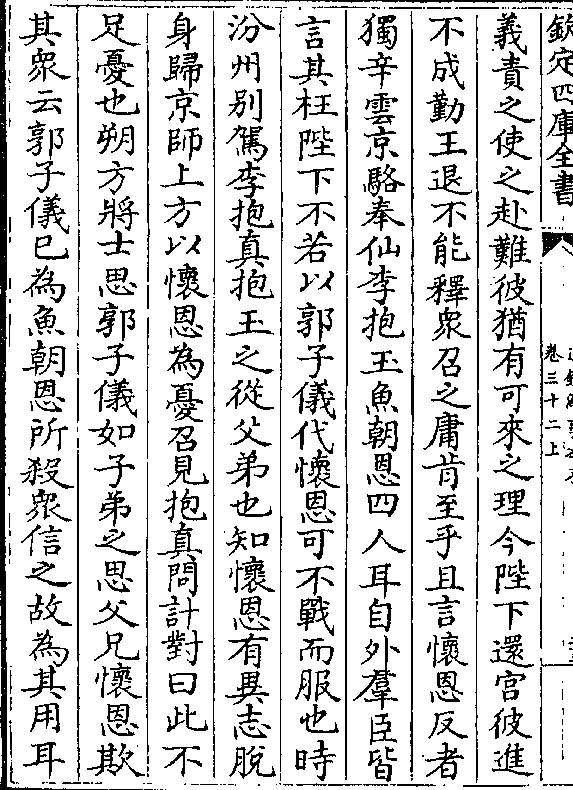 欽定四庫全書
卷三十二上
義責之使之赴難彼猶有可來之理今陛下還宮彼進
不成勤王退不能釋衆召之庸肯至乎且言懷恩反者
獨辛雲京駱奉仙李抱玉魚朝恩四人耳自外羣臣皆
言其枉陛下不若以郭子儀代懷恩可不戰而服也時
汾州別駕李抱真抱玉之從父弟也知懷恩有異志脫
身歸京師上方以懷恩為憂召見抱真問計對曰此不
足憂也朔方將士思郭子儀如子弟之思父兄懷恩欺
其衆云郭子儀已為魚朝恩所殺衆信之故為其用耳